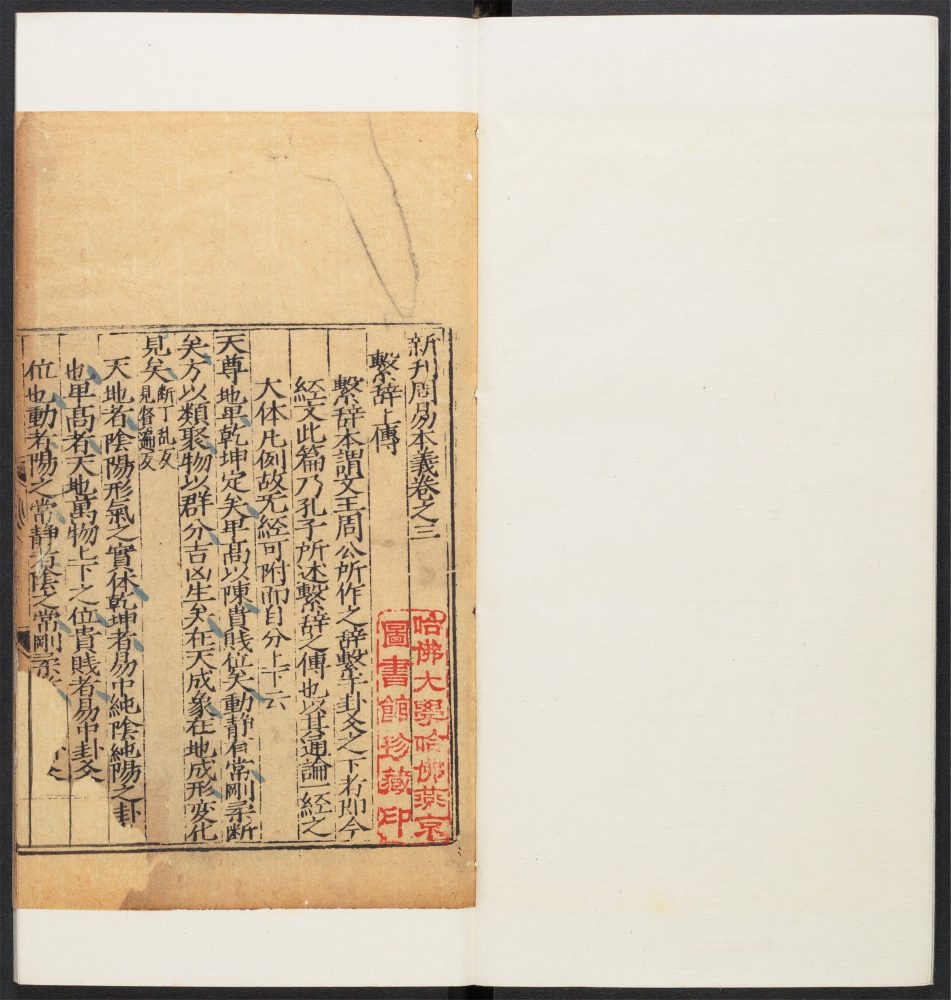 新刋周易本義卷之三
繫辭上傳
繫辭本謂文王周公所作之辭繫乎卦爻之下者即今
経文此篇乃孔子所述繫辭之傳也以其通論一経之
大体凡例故无経可附而自分上下云
天尊地卑乾坤定矣卑髙以陳貴賤位矣動静有常剛柔断
矣方以類聚物以群分吉凶生矣在天成象在地成形変化
見矣断丁乱反
見賢遍反
天地者陰陽形氣之實体乾坤者易中純陰純陽之卦
也卑髙者天地萬物上下之位貴賤者易中卦爻
位也動者陽之常静者陰之常剛柔 卦爻
哈佛大學哈佛燕京
圖書館珍藏印